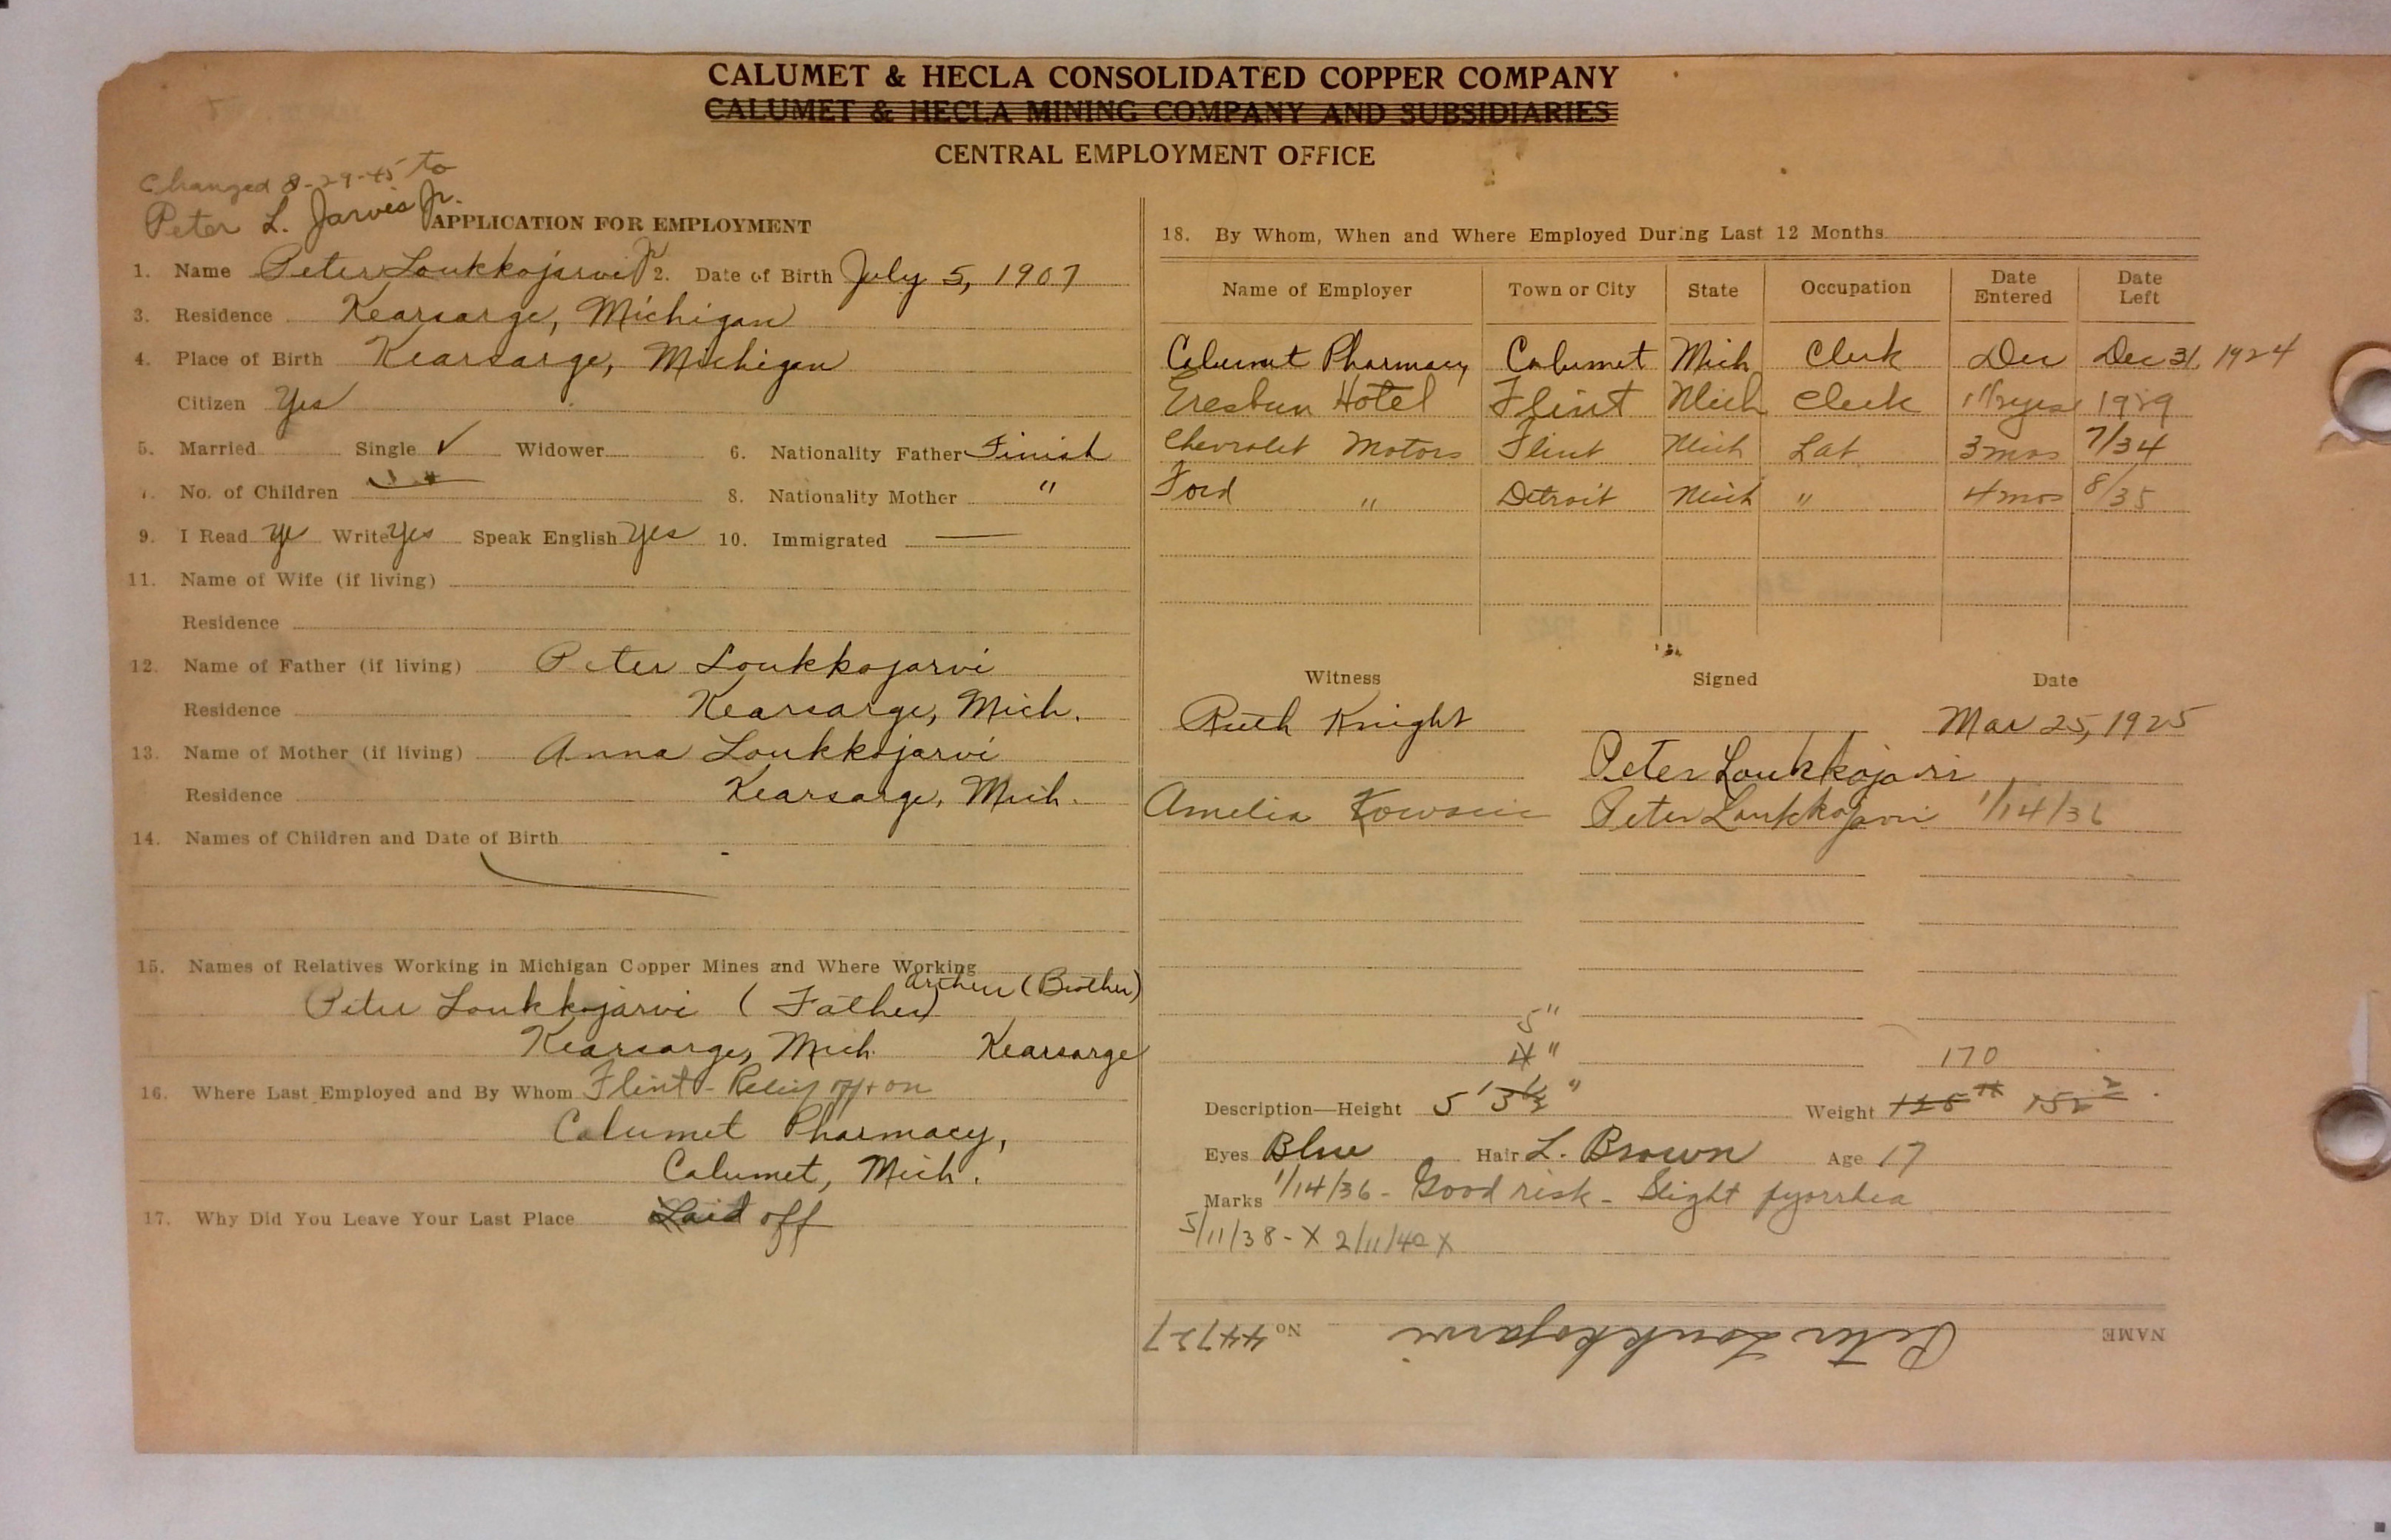 CALUMET & HECLA CONSOLIDATED COPPER COMPANY
CALUMET & HECLA MINING COMPANY AND SUBSIDIARIES
CENTRAL EMPLOYMENT OFFICE
Changed 8-29-45 to
Peter L. Jarvis Jr.
APPLICATION FOR EMPLOYMENT
1. Name Peter Loukkojarvi Jr 2. Date of Birth July 5, 1907
3. Residence Kearsarge, Michigan
4. Place of Birth Kearsarge, Michigan
Citizen Yes
5. Married Single ✓ Widower 6. Nationality Father Finish
7. No. of Children 8. Nationality Mother "
9. I Read Ye Write Yes Speak English Yes 10. Immigrated —
11. Name of Wife (if living)
Residence
12. Name of Father (if living) Peter Loukkojarvi
Residence Kearsarge, Mich.
13. Name of Mother (if living) Anna Loukkojarvi
Residence Kearsarge, Mich.
14. Names of Children and Date of Birth
15. Names of Relatives Working in Michigan Copper Mines and Where Working
Arthur (Brother)
Peter Loukkojarvi (Father)
Kearsarge, Mich Kearsarge
16. Where Last Employed and By Whom Flint - Relief off + on
Calumet Pharmacy,
Calumet, Mich.
17. Why Did You Leave Your Last Place Laid off
18. By Whom, When and Where Employed During Last 12 Months
Name of Employer Town or City State Occupation Date Entered Date Left
Calumet Pharmacy Calumet Mich Clerk Dec Dec 31, 1924
Hotel Flint Mich Clerk 1 1/2 yrs 1929
Chevrolet Motors Flint Mich Lab 3 mos 7/34
Ford " Detroit Mich " 4 mos 8/35
Witness Signed Date
Ruth Knight Mar 25, 1925
Peter Loukkojarvi
Amelia Peter Loukkojarvi 1/14/36
5"
4"
170
Description—Height 5' 3 1/2" Weight 125 # 152
Eyes Blue Hair L. Brown Age 17
Marks 1/14/36 - Good risk - Slight pyorrhea
5/11/38 - X 2/11/40 X
NAME Peter Loukkojarvi No 44727